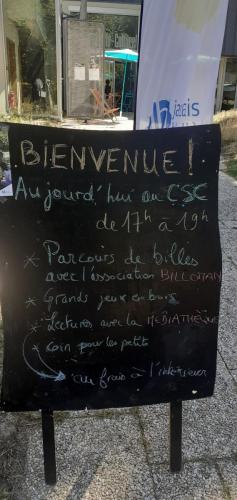 BIENVENUE!
Aujourd'hui au CSC
de 17h à 19h
* Parcours de billes
avec l'association BILLOMAN
* Grands jeux en bois
* Lectures avec la MEDIATHEQUE
* coin pour les petits
au frais à l'intérieur